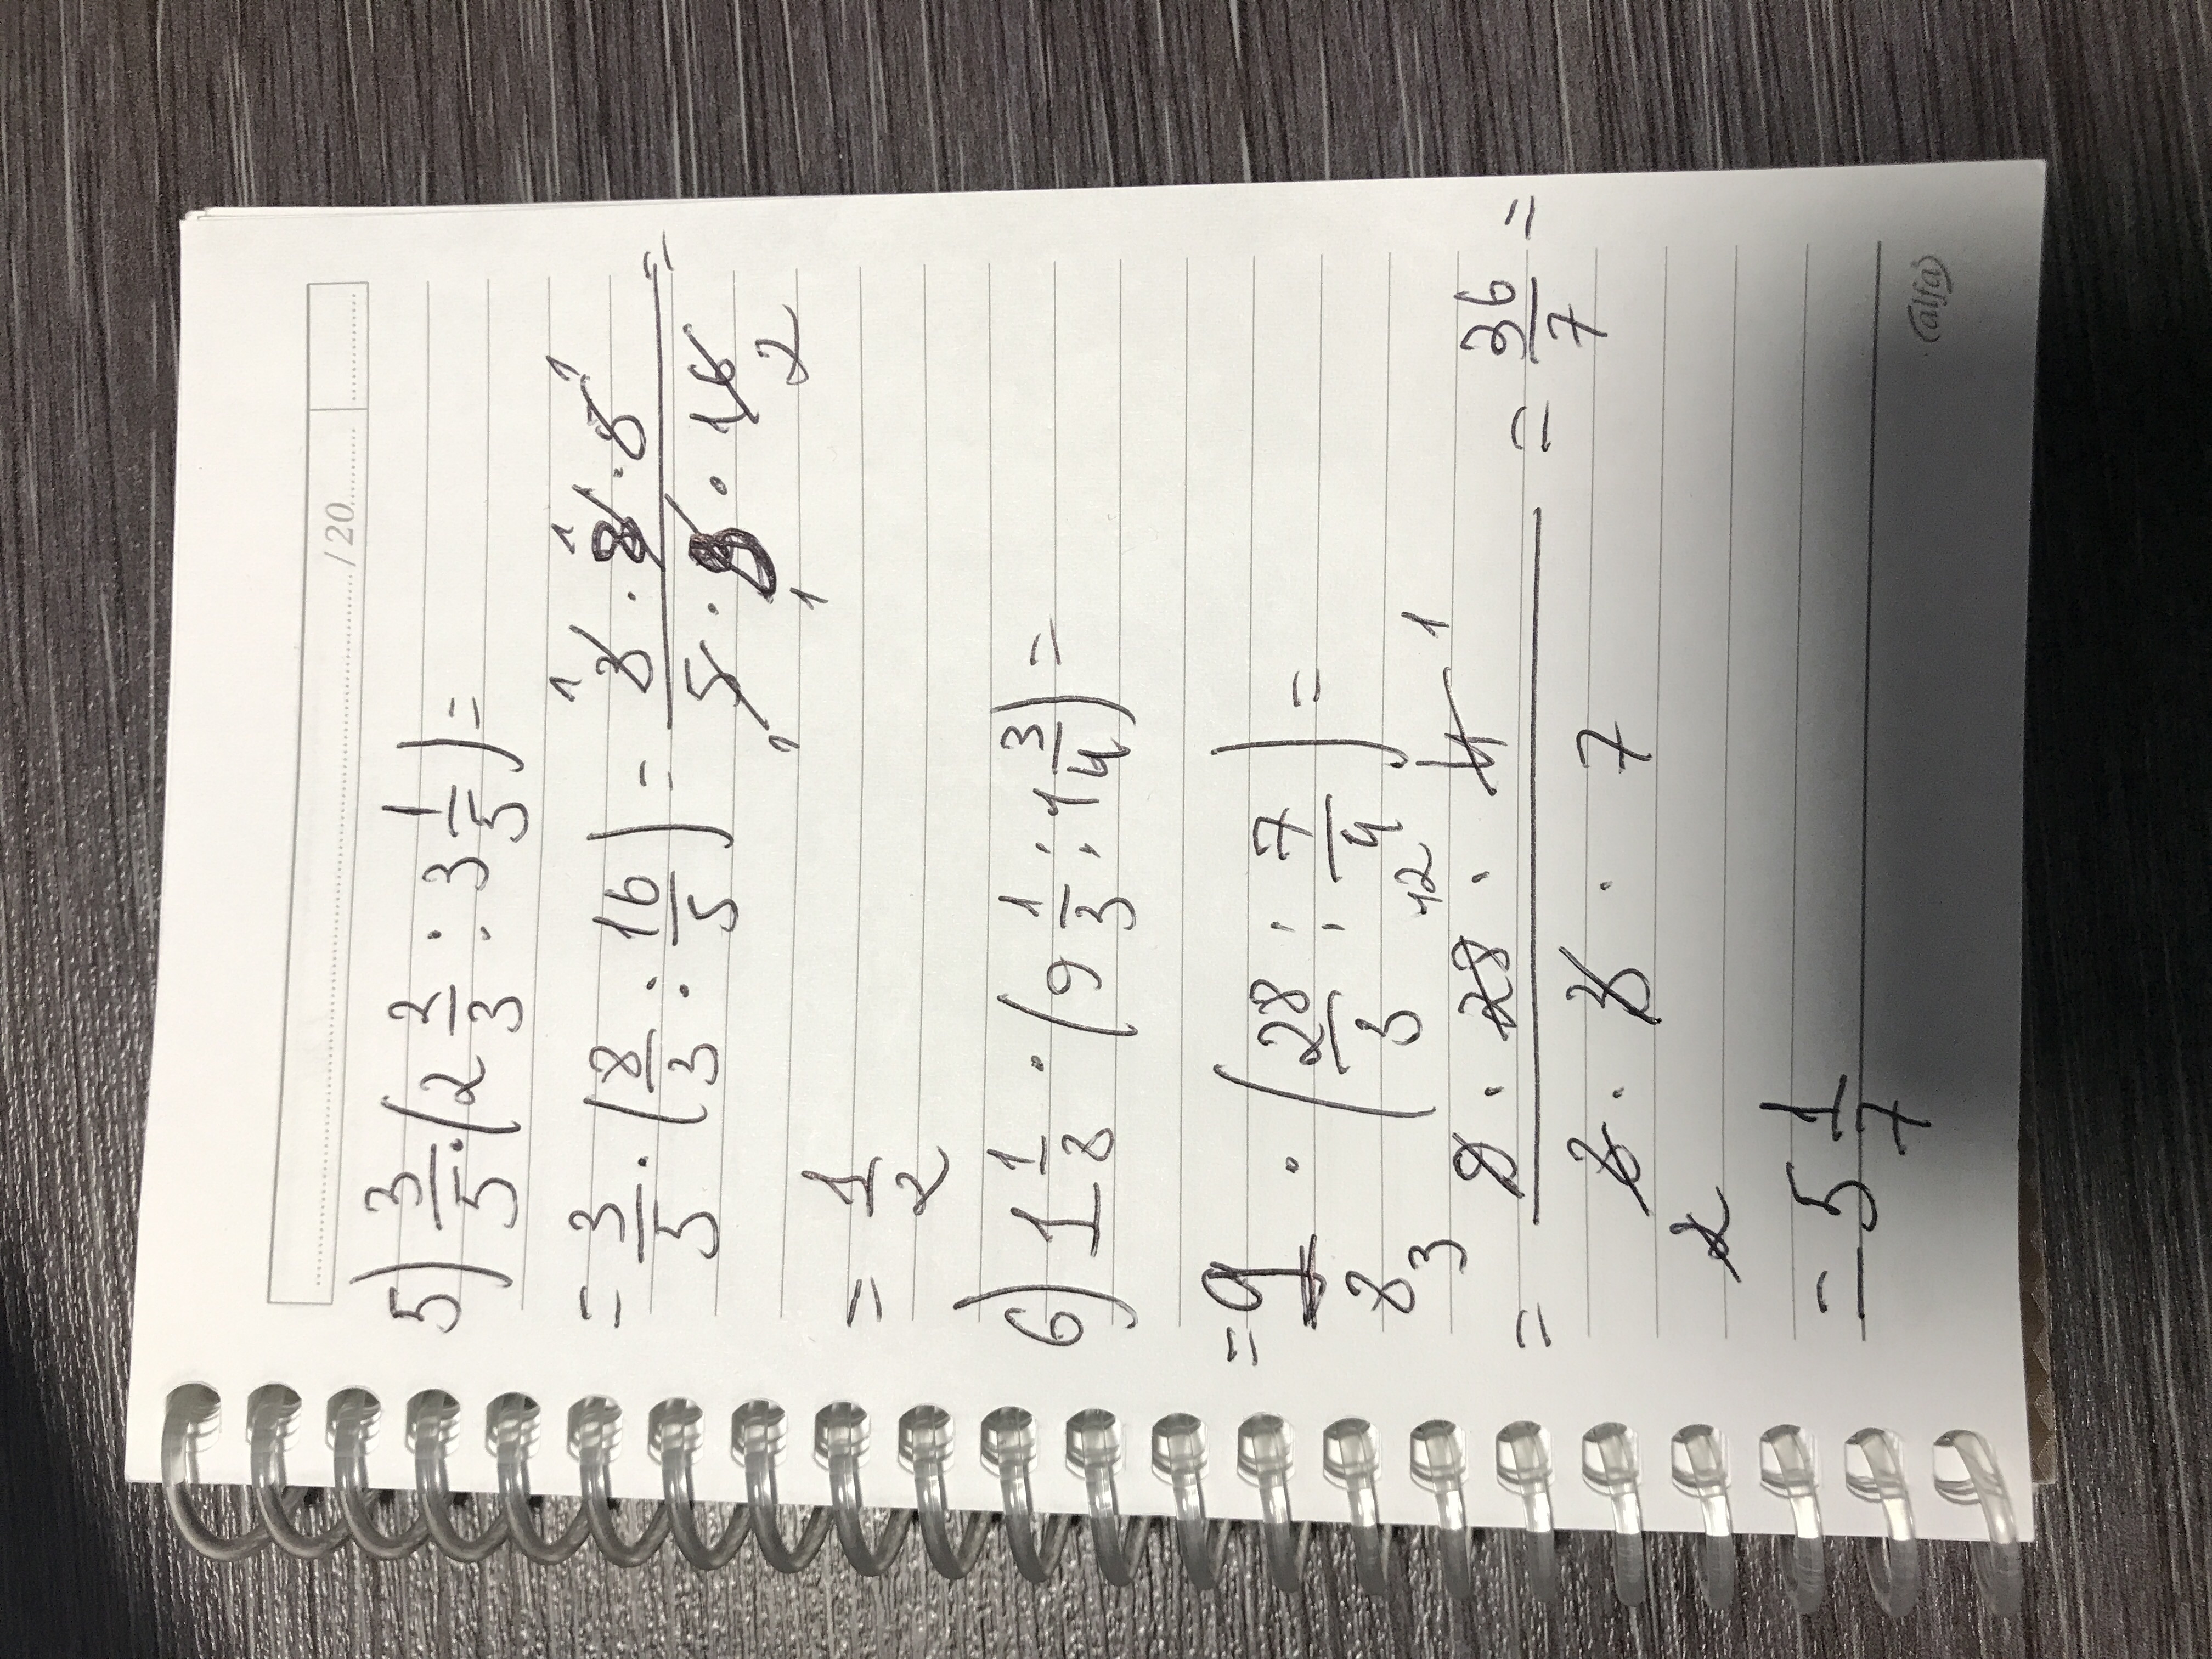 /20
5) 3/5 · (2 2/3 : 3 1/5) =
= 3/5 · (8/3 : 16/5) = 3 · 8 · 5 / 5 · 3 · 16 =
1 1 1
1 1 2
= 1/2
6) 1 1/8 · (9 1/3 : 1 3/4) =
= 9/8 · (28/3 : 7/4) =
3 12 1
= 9 · 28 · 4 / 8 · 3 · 7 = 36/7 =
2
= 5 1/7
alfa